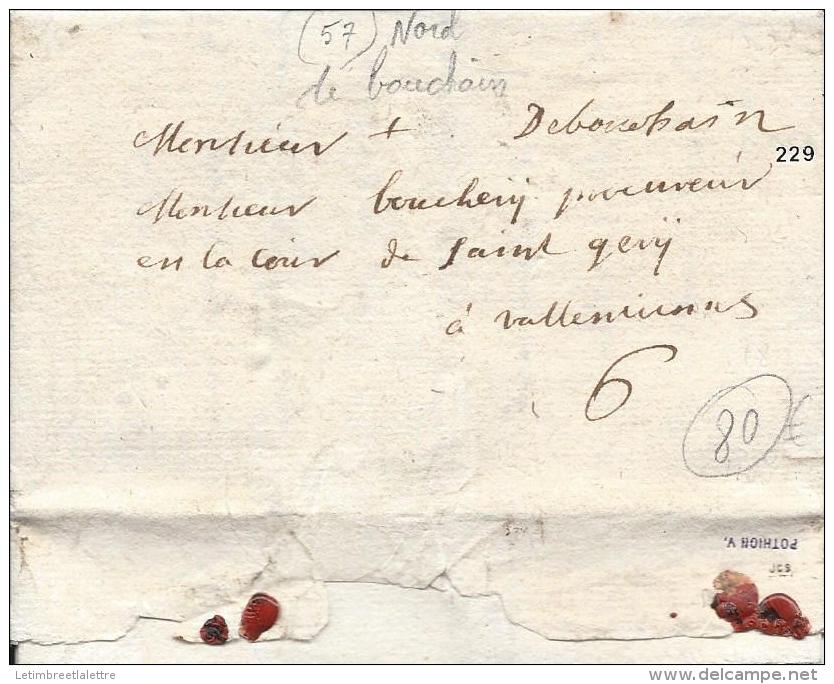 (57) Nord
de bouchain
Monsieur + Debouchain
229
Monsieur bouchery procureur
en la Cour de saint gery
à vallenciennes
6
80 €
POTHION V.
JCS
Letimbreetlalettre
delcampe.net